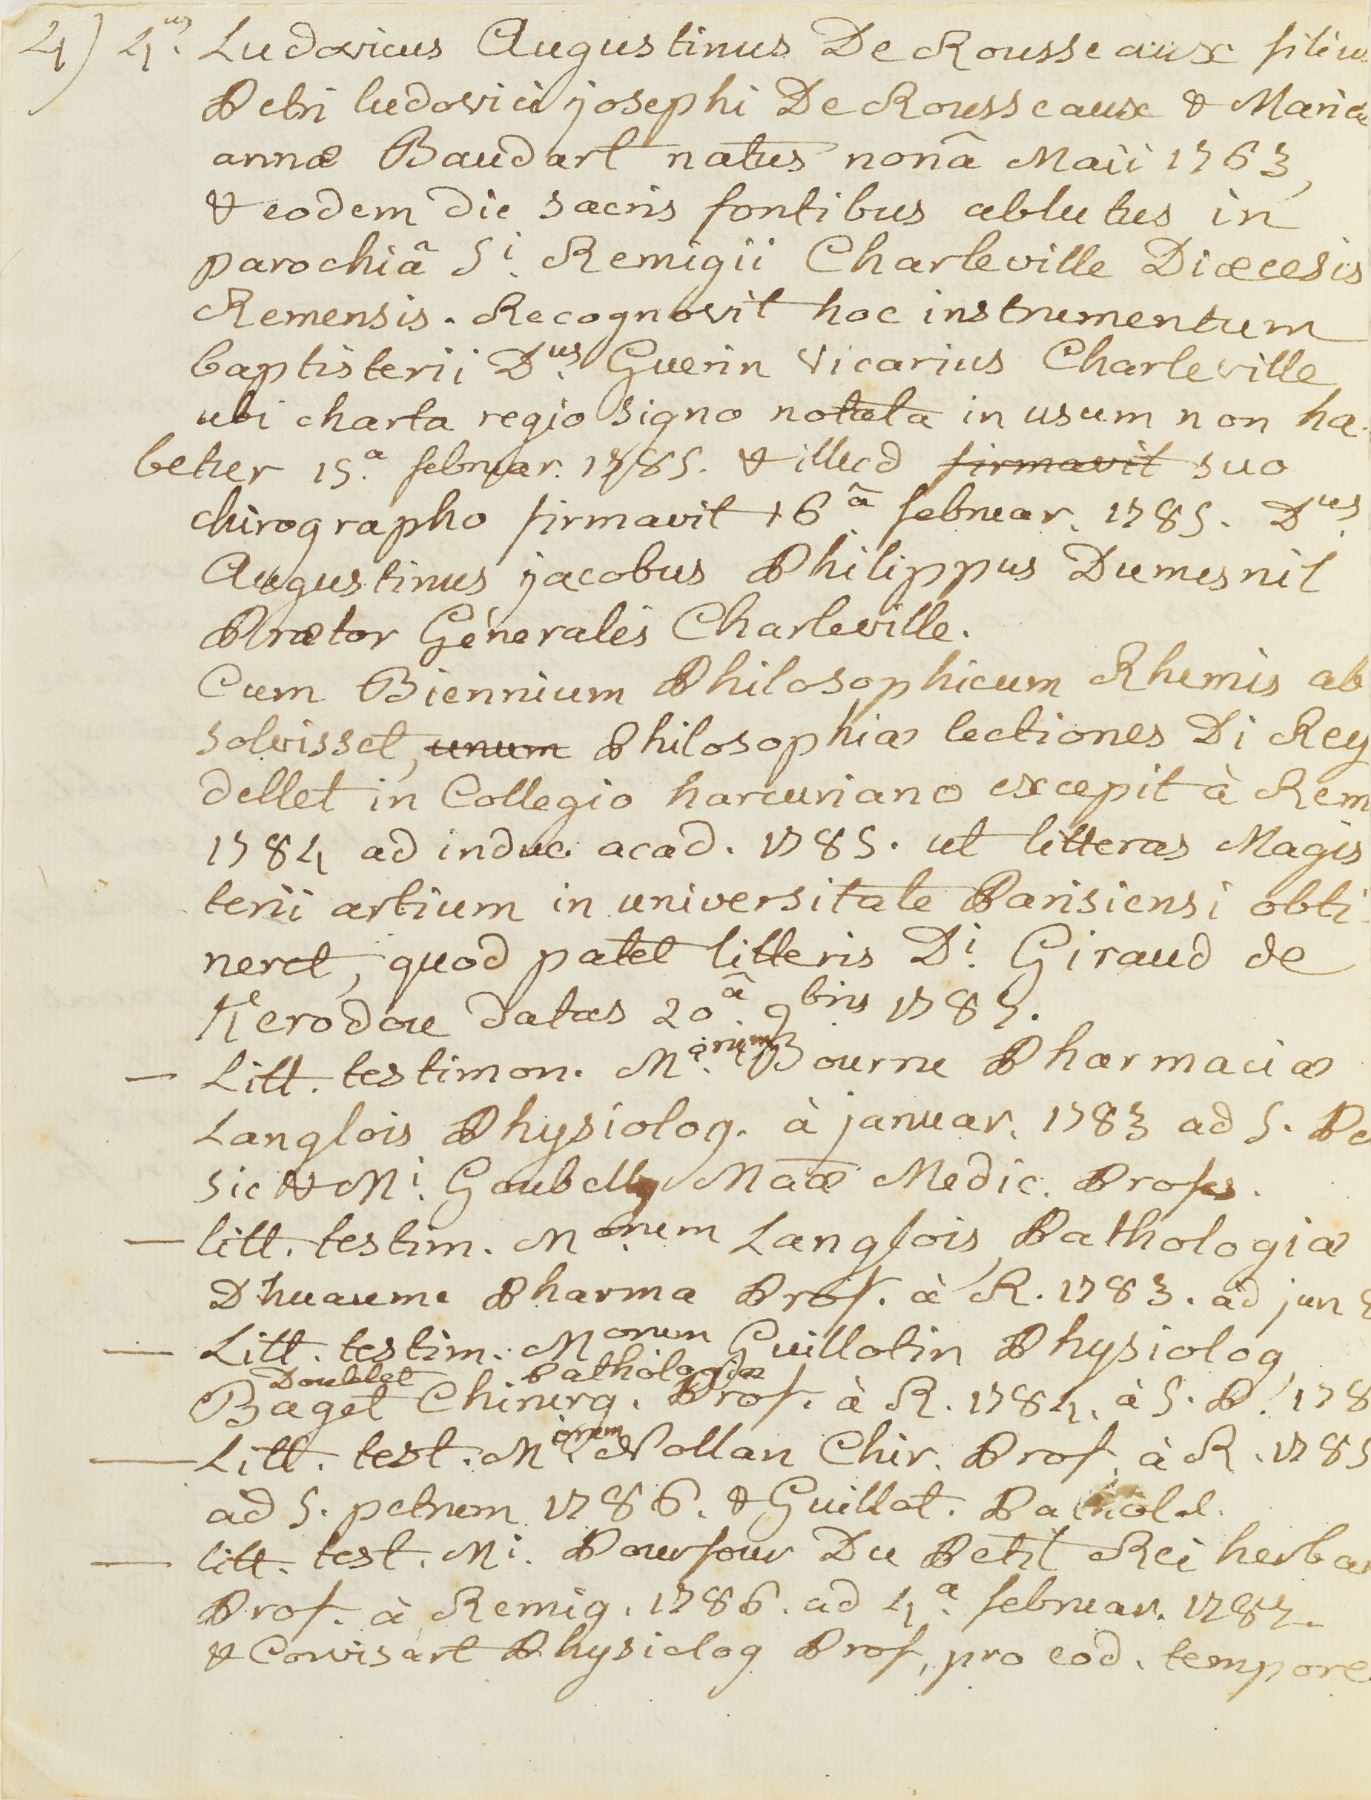 4) 4us. Ludovicus Augustinus De Rousseaux filius
Petri ludovici josephi De Rousseaux & Mariæ
annæ Baudart natus nonâ Maii 1763,
& eodem die sacris fontibus ablutus in
parochiâ Si. Remigii Charleville Diœcesis
Remensis. Recognovit hoc instrumentum
baptisterii Dus. Guerin Vicarius Charleville
ubi charta regio signo notata in usum non ha-
betur 15a. februar. 1785. & illud firmavit suo
chirographo firmavit 16â februar. 1785. Dus.
Augustinus jacobus Philippus Dumesnil
Prætor Génerales Charleville.
Cum Biennium Philosophicum Rhemis ab
solvisset, unum Philosophiæ lectiones Di Rey
dellet in Collegio harcuriano excepit à Rem
1784 ad induc. acad. 1785. ut litteras Magis
terii artium in universitate Parisiensi obti
neret, quod patet litteris Di. Giraud de
Kerodou datas 20â 9bris 1785.
— Litt. testimon. M. orum Bourru Pharmaciæ
Langlois Physiolog. à januar. 1783 ad S. Pe
sic & Mi. Goubelly Maæ Medic. Profes.
— litt. testim. Morum Langlois Pathologiæ
Dhuaume Pharma Prof. à R. 1783. ad jun
— Litt. testim. Morum Guillotin Physiolog
Doublet Pathologiæ
Baget Chirurg. Prof. à R. 1784. à S. P. 178
— Litt. test. M. orum Nollan Chir. Prof. à R. 1785
ad S. petrum 1786. & Guillot. Pathol.
— litt. test. Mi. Pourfour Du Petit Rei herba
Prof. à Remig. 1786. ad 4a. februar. 1787.
& Corvisart Physiolog Prof, pro eod. tempore